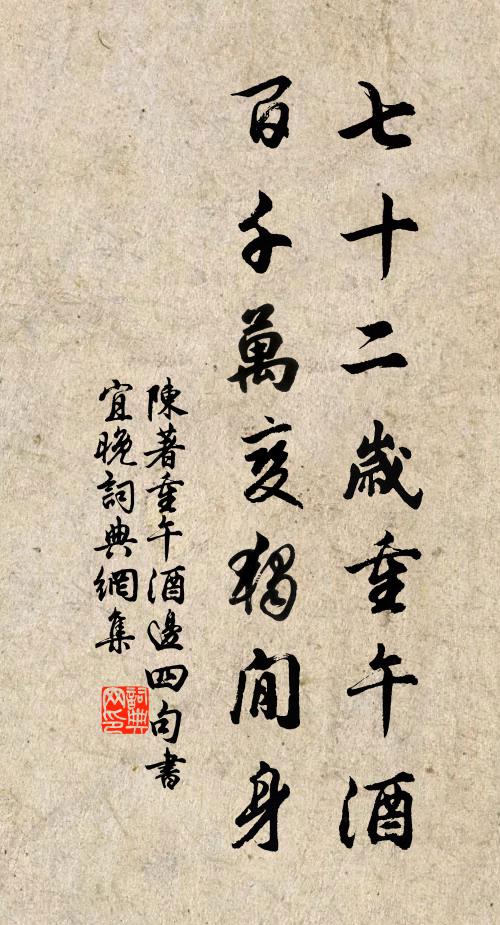 七十二歲重午酒
百千萬變獨閒身
陳著重午酒邊四句書
宜晚詞典網集
詞典網印